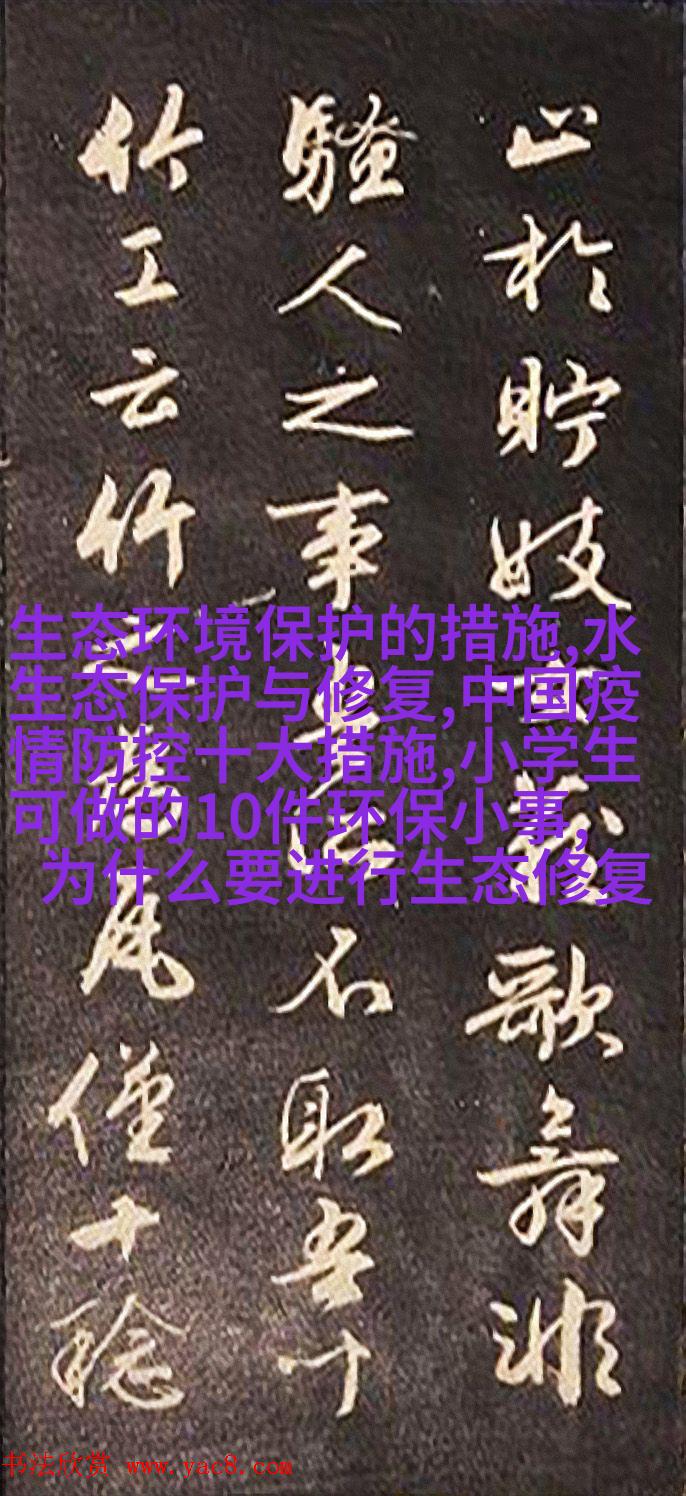 止於貯妓女藏歌舞非
騷人之事吾所不取吾
竹工云竹之為瓦僅十稔
生态环境保护的措施,水
生态保护与修复,中国疫
情防控十大措施,小学生
可做的10件环保小事,
为什么要进行生态修复
书法欣赏 www.yac8.com